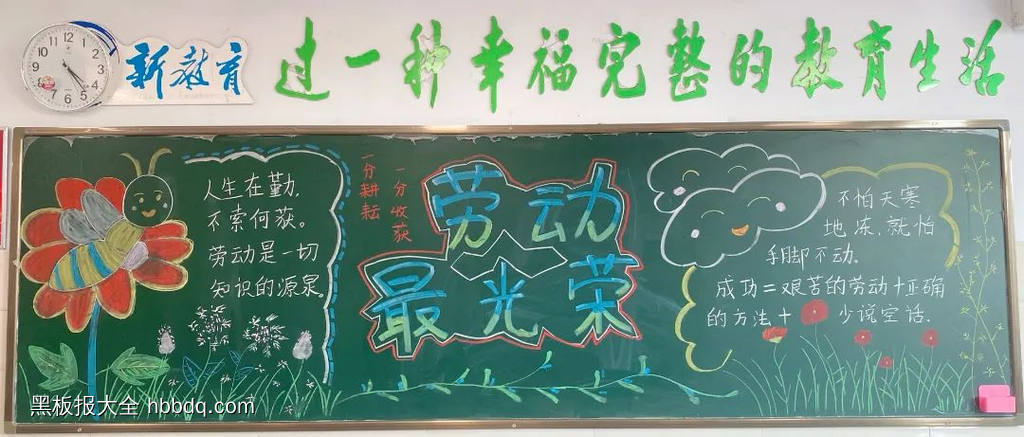 新教育
过一种幸福完整的教育生活
人生在勤,
不索何荻。
劳动是一切
知识的源泉。
一分耕耘
一分收获
劳动
最光荣
不怕天寒
地冻,就怕
手脚不动.
成功=艰苦的劳动+正确
的方法+少说空话.
黑板报大全 hbbdq.com
12
1
2
3
4
5
6
7
8
9
10
11